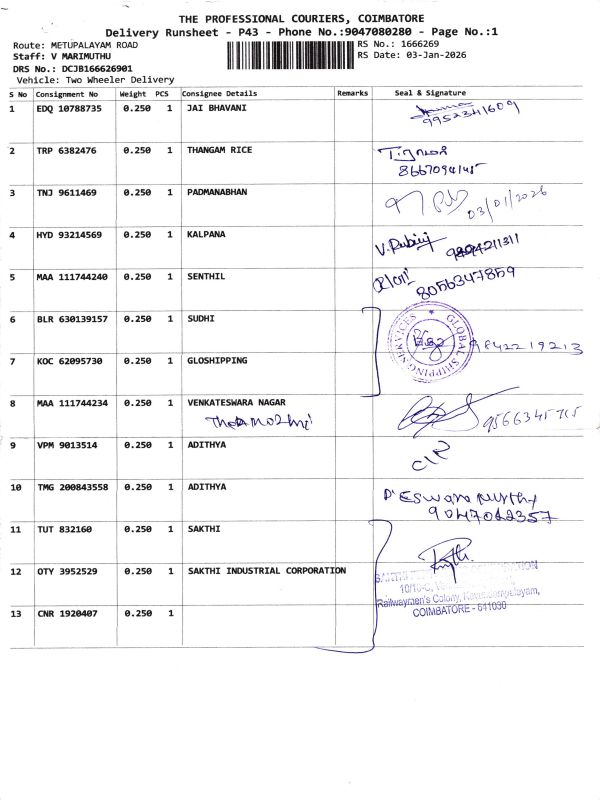 THE PROFESSIONAL COURIERS, COIMBATORE
Delivery Runsheet - P43 - Phone No.:9047080280 - Page No.:1
Route: METUPALAYAM ROAD RS No.: 1666269
Staff: V MARIMUTHU RS Date: 03-Jan-2026
DRS No.: DCJB166626901
Vehicle: Two Wheeler Delivery
S No Consignment No Weight PCS Consignee Details Remarks Seal & Signature
1 EDQ 10788735 0.250 1 JAI BHAVANI
9952341609
2 TRP 6382476 0.250 1 THANGAM RICE
8667094145
3 TNJ 9611469 0.250 1 PADMANABHAN
03/01/2026
4 HYD 93214569 0.250 1 KALPANA
5 MAA 111744240 0.250 1 SENTHIL
8056347859
6 BLR 630139157 0.250 1 SUDHI
GLOBAL SHIPPING SERVICES
9842219213
7 KOC 62095730 0.250 1 GLOSHIPPING
8 MAA 111744234 0.250 1 VENKATESWARA NAGAR
9566345715
9 VPM 9013514 0.250 1 ADITHYA
10 TMG 200843558 0.250 1 ADITHYA
9047042357
11 TUT 832160 0.250 1 SAKTHI
12 OTY 3952529 0.250 1 SAKTHI INDUSTRIAL CORPORATION
Railwaymen's Colony,
COIMBATORE - 641030
13 CNR 1920407 0.250 1